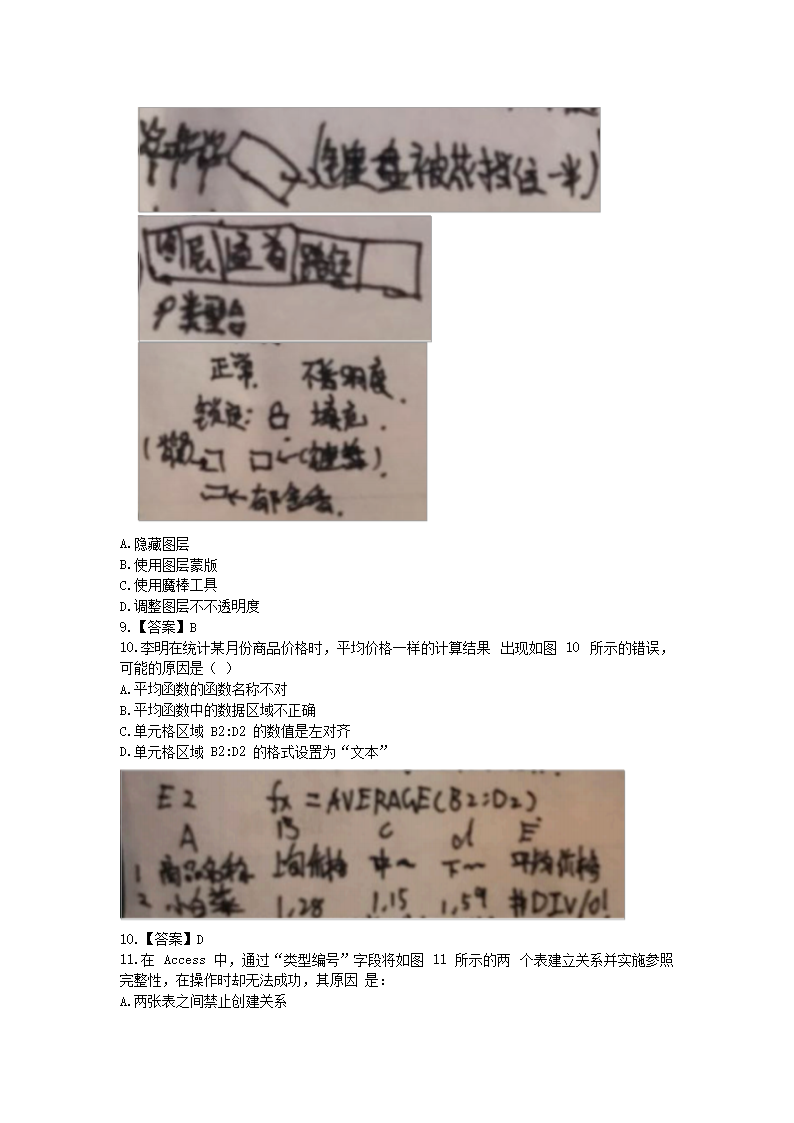 (键盘被花挡住一半)
图层 通道 路径
P类型
正常 不透明度
锁定: 填充
(背景) (键盘)
郁金香
A.隐藏图层
B.使用图层蒙版
C.使用魔棒工具
D.调整图层不不透明度
9.【答案】B
10.李明在统计某月份商品价格时，平均价格一样的计算结果 出现如图 10 所示的错误，
可能的原因是（ ）
A.平均函数的函数名称不对
B.平均函数中的数据区域不正确
C.单元格区域 B2:D2 的数值是左对齐
D.单元格区域 B2:D2 的格式设置为“文本”
E2 fx =AVERAGE(B2:D2)
A B C d E
1 商品名称 上旬价格 中~ 下~ 平均价格
2 小白菜 1.28 1.15 1.59 #DIV/0!
10.【答案】D
11.在 Access 中，通过“类型编号”字段将如图 11 所示的两 个表建立关系并实施参照
完整性，在操作时却无法成功，其原因 是：
A.两张表之间禁止创建关系